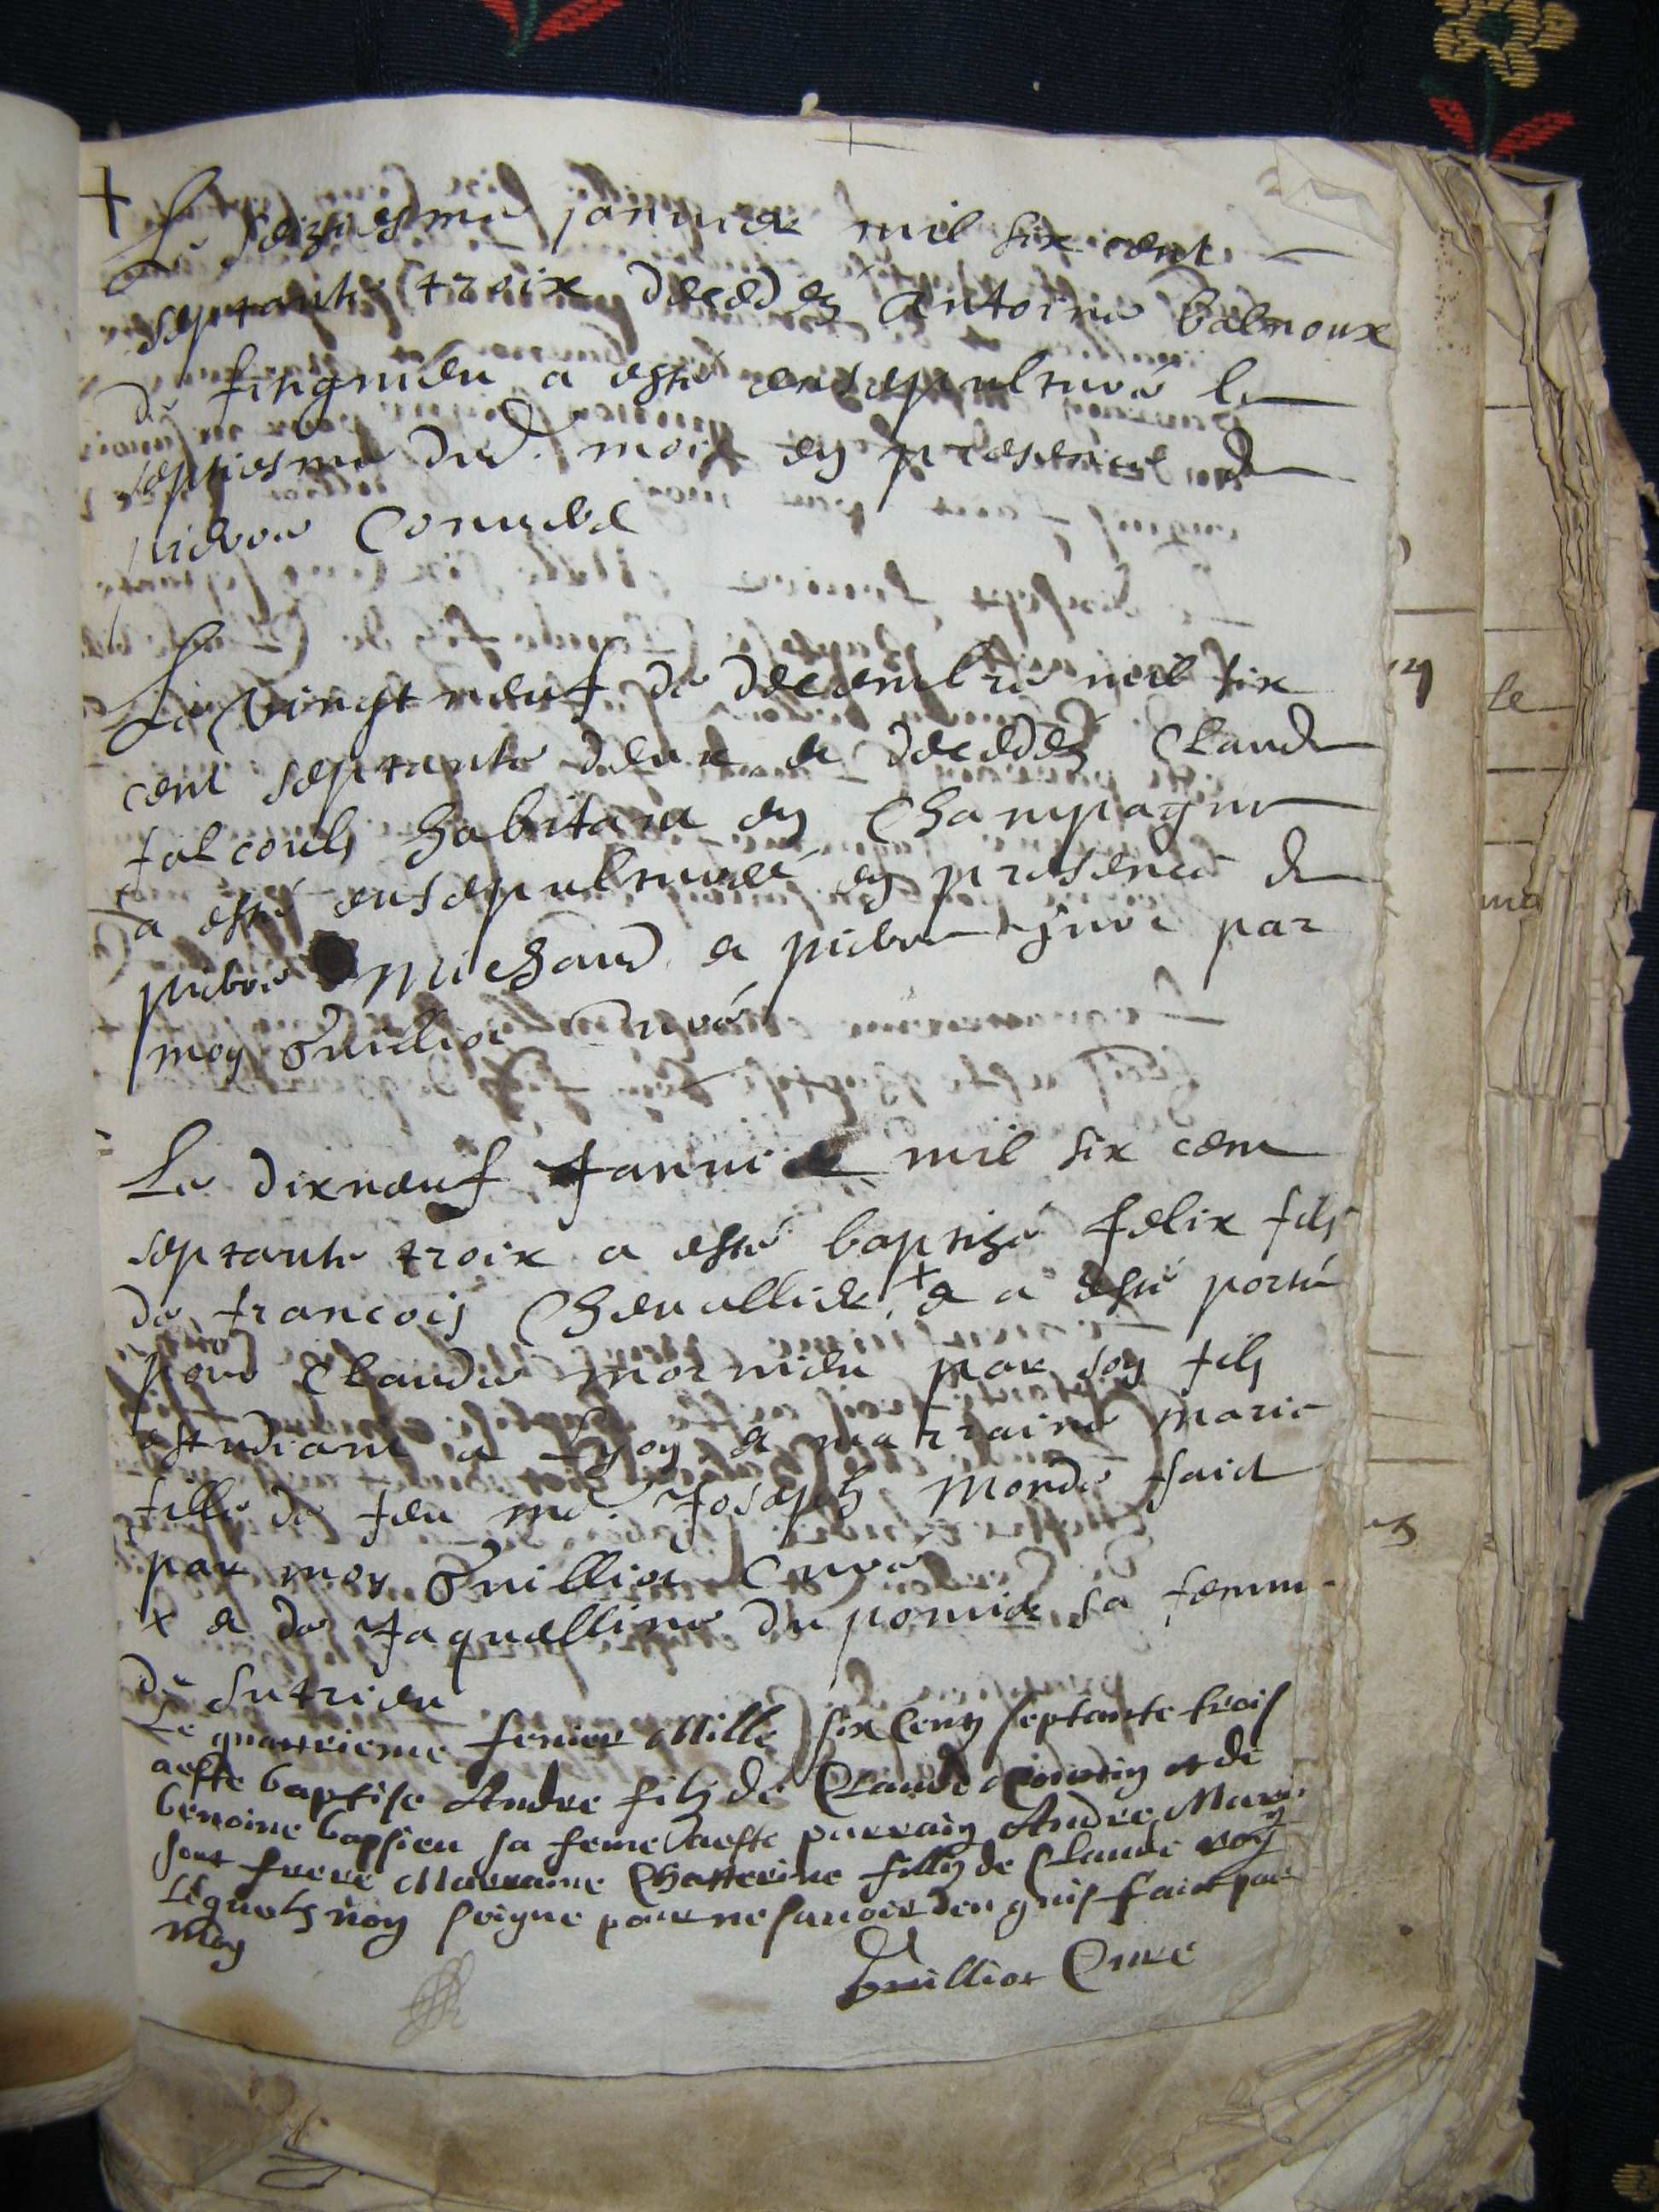 + Le seiziesme januier mil six cent
septante troix decedez Antoine balmoux
de fitignieu a esté ensepulturé le
septiesme dud. mois en presence de
pierre Conuert
Le vingt neuf de decembre mil six
cent septante deux et decedez Claude
falcouls habitant en Champagne
a esté ensepulturéé en presence de
pierre Michaud et pierre par
moy Guilliot Curé
Le dixneuf Januier mil six cent
septante troix a esté baptisé felix fils
de francois Cheuallier + et a esté porté
pour Claude mornieu par son fils
estudiant a Lyon et marraine marie
fille de feu me. Joseph Monde faict
par moy Guilliot Curé
x et de Jaquelline du pomier sa femme
de sutrieu
Le quatrieme feurier Mille six Cens septante trois
aeste baptise Andre fils de Claude et de
benoine sa feme aeste parrain Andre
sont frere Marraine Chatterine fille de Claude roy
Lequels non soigne pour ne sauoir den quis faict par
moy
Guilliot Cure